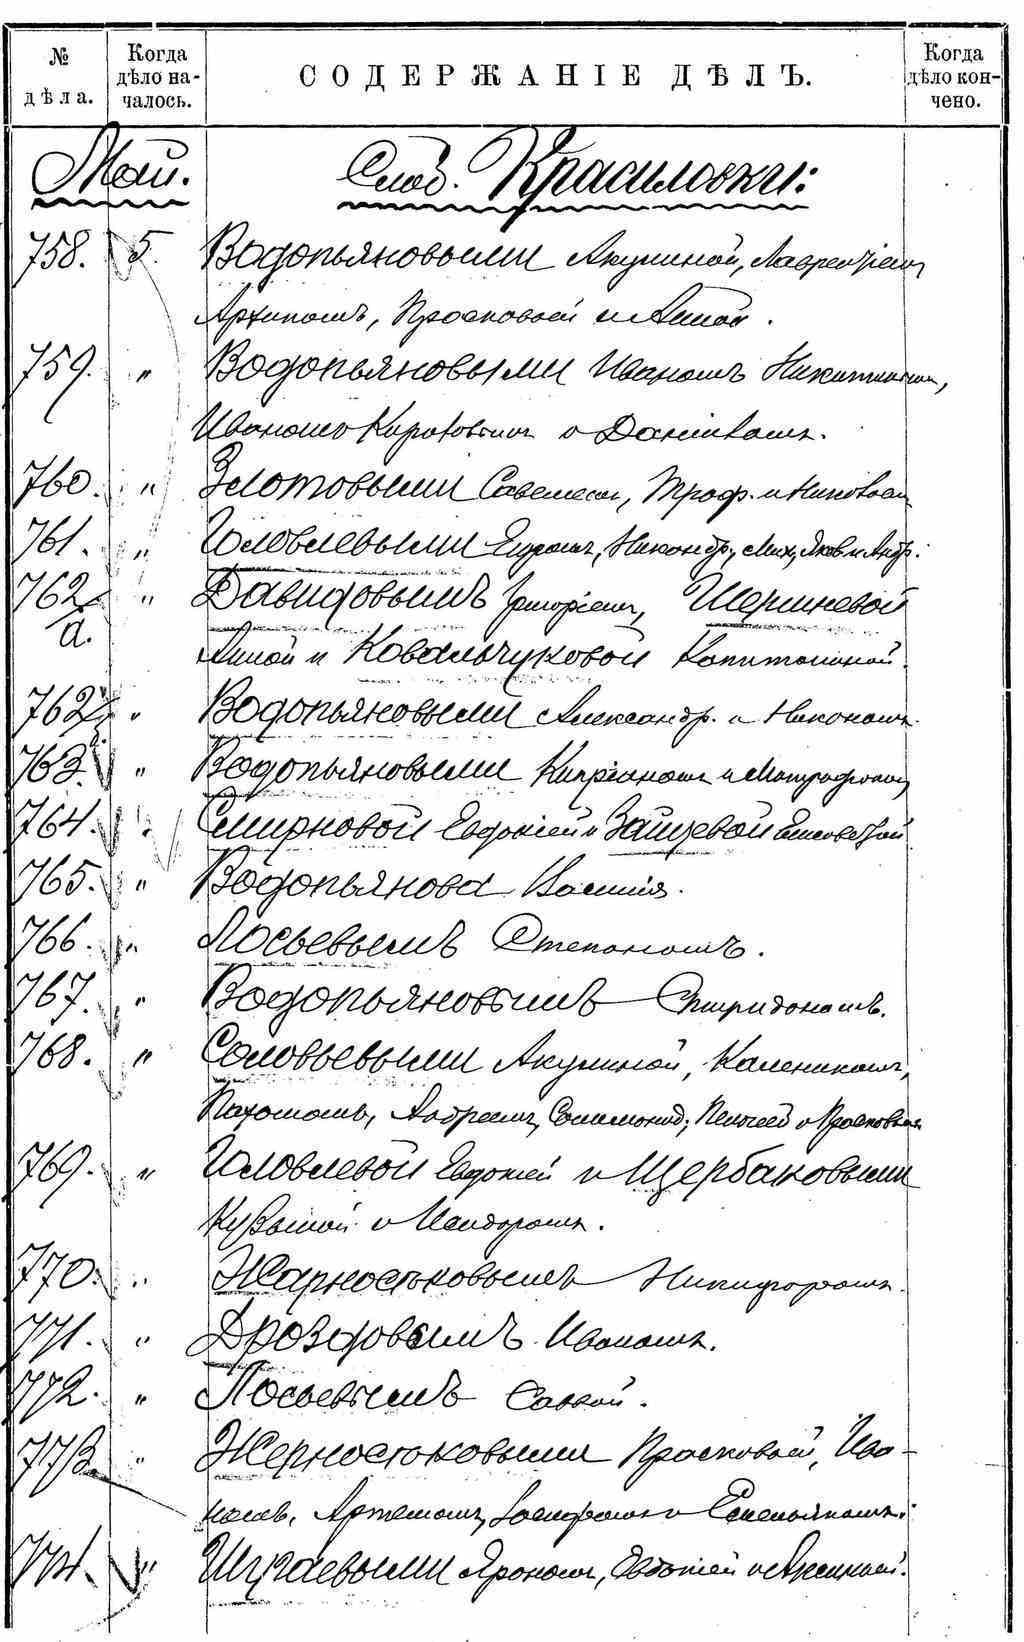 № дѣла.
Когда дѣло на-чалось.
СОДЕРЖАНІЕ ДѢЛЪ.
Когда дѣло кон-чено.
Май.
Слоб. Красиловки:
758. 5. Водопьяновыми Акулиной, Лаврентіем,
Архипомъ, Прасковьей и Анной.
759. " Водопьяновыми Иваномъ Никитинымъ,
Иваномъ и
760. " Золотовыми Савелием, Троф. и Николаем
761. " Головлевыми Никондр., Мих., Яков и Андр.
762 а. " Давидовымъ Григоріем, Шершневой
Анной и Ковальчуковой Капитолиной.
762 " Водопьяновыми Александр. и Никоном.
763. " Водопьяновыми Кипріаном и Митрофаном
764. " Смирновой Евдокіей и Зайцевой Елисаветой
765. " Водопьянова Василія.
766. " Лосьевымъ Степаномъ.
767. " Водопьяновымъ Спиридономъ.
768. " Соловьевыми Акулиной, Калеником,
Пахомомъ, Андреем, Соломонид., Пелагеей и Прасковьей
769. " Головлевой Евдокией и Щербаковыми
и Исидором.
770. " Никифором.
771. " Дроздовымъ Иваном.
772. " Лосьевымъ Саввой.
773. " Прасковьей, Ива-
номъ, Артемом, и Емельяном.
774. " и